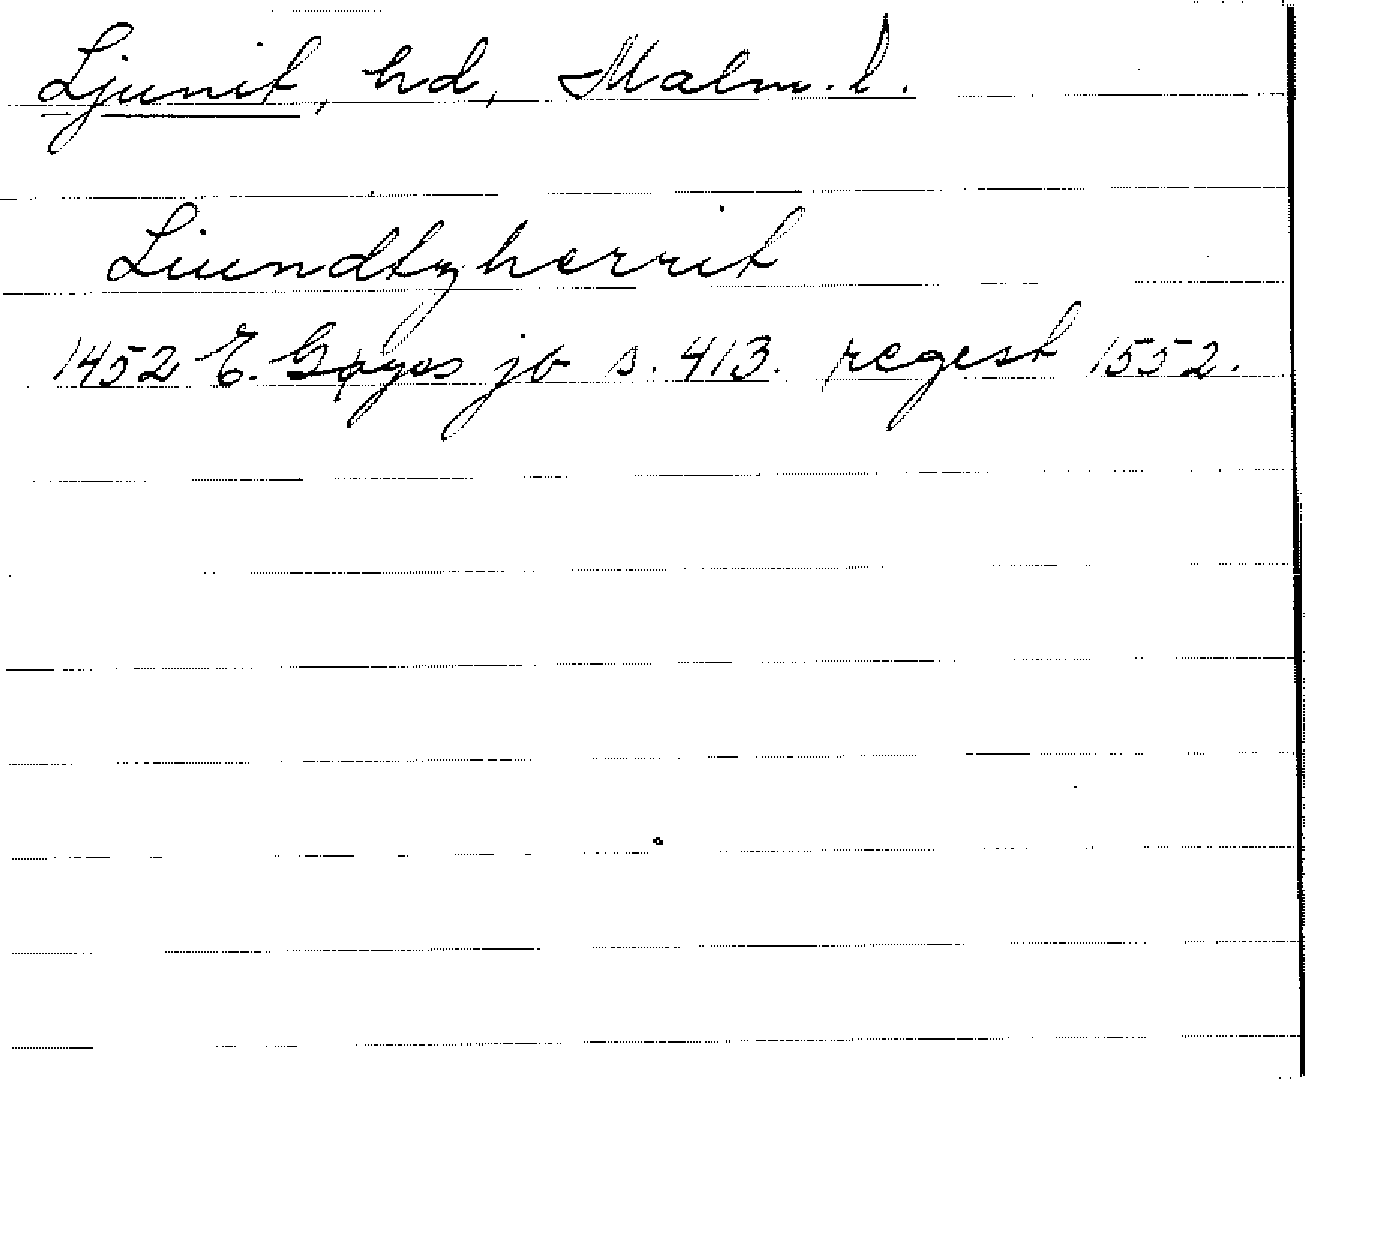 Ljunit, hd, Malm. l.
Liundtzherrit
1452 E. Gøyes jb s. 413. regest 1552.